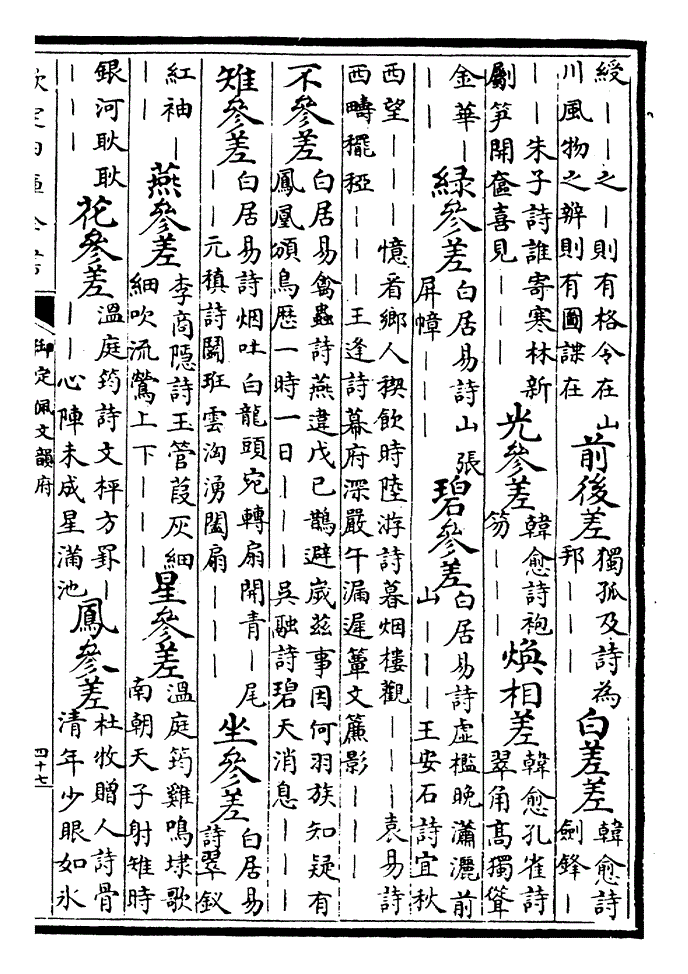 綬｜｜之｜則有格令在山
川風物之辨則有圖諜在
前後差
獨孤及詩為
邦｜｜｜
白差差
韓愈詩
劍鋒｜
｜｜朱子詩誰寄寒林新
斸笋開奩喜見｜｜
光參差
韓愈詩袍
笏｜｜｜
煥相差
韓愈孔雀詩
翠角高獨聳
金華｜
｜｜
綠參差
白居易詩山張
屏幛｜｜｜
碧參差
白居易詩虛檻晚瀟灑前
山｜｜｜王安石詩宜秋
西望｜｜｜憶看鄉人稧飲時陸游詩暮烟樓觀｜｜｜袁易詩
西疇䆉稏｜｜｜王逢詩幕府深嚴午漏遲簟文簾影｜｜｜
不參差
白居易禽蟲詩燕違戊己鵲避歲茲事因何羽族知疑有
鳳凰頒鳥歴一時一日｜｜｜吳融詩碧天消息｜｜｜
雉參差
白居易詩烟吐白龍頭宛轉扇開青｜尾
｜｜元稹詩闘班雲洶湧闔扇｜｜｜
坐參差
白居易
詩翠釵
紅袖｜
｜｜
燕參差
李商隱詩玉管葭灰細
細吹流鶯上下｜｜｜
星參差
溫庭筠雞鳴埭歌
南朝天子射雉時
銀河耿耿
｜｜｜
花參差
溫庭筠詩文枰方罫｜
｜｜心陣未成星滿池
鳳參差
杜牧贈人詩骨
清年少眼如氷
欽定四庫全書
御定佩文韻府
四十七